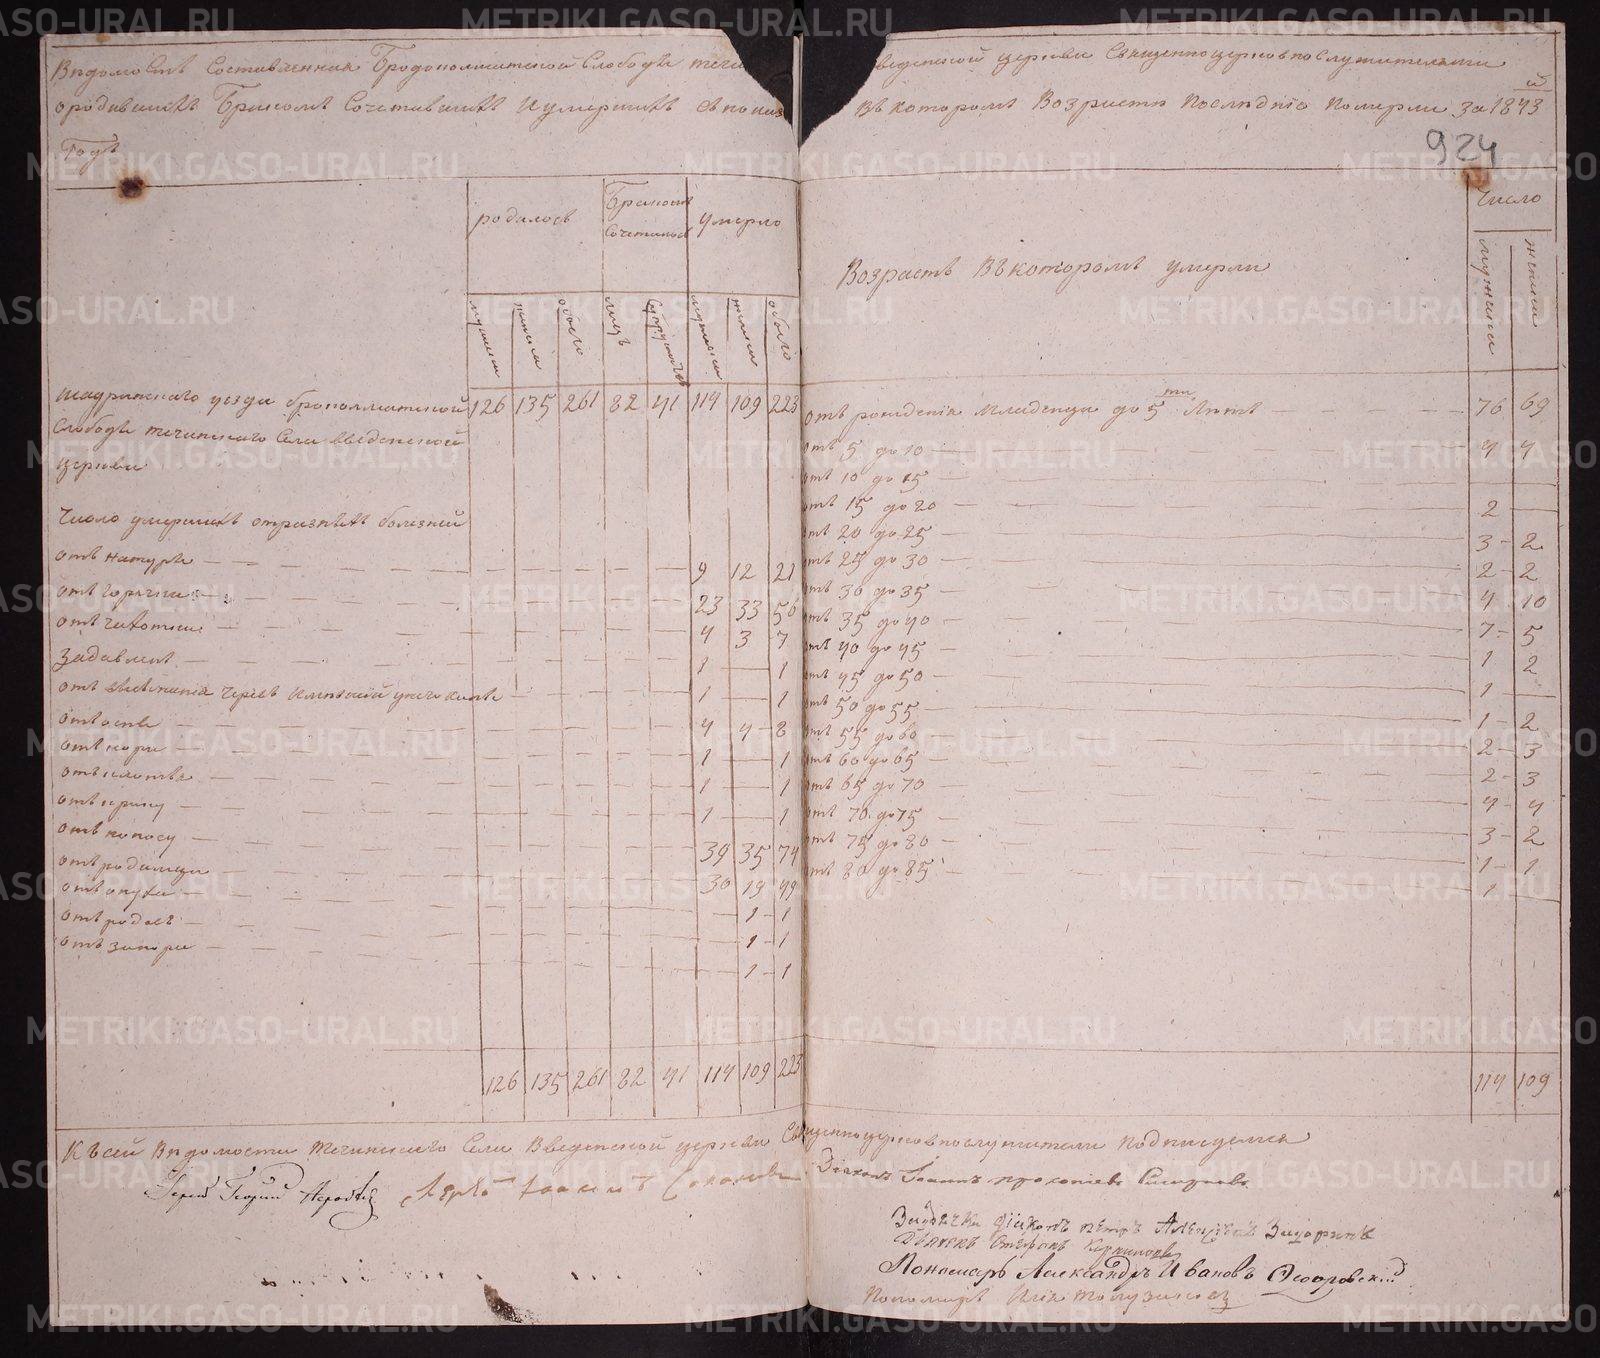 Вѣдомость Составленная Бродоколматской Слободы течи
введенской церкви Священноцерковнослужителями
о родившихъ Бракомъ Сочетавшихъ И умершихъ съ показ
Въ которомъ Возрастѣ Послѣдніе Померли За 1843 й
Годъ
924
родилось
Бракомъ Сочеталось
умерло
Возрастъ Въ которомъ умерли
Число
мужска
женска
обоего
лицъ
супружествъ
мужска
женска
обоего
мужска
женска
Шадринскаго уѣзда бродоколматской 126 135 261 82 41 114 109 223
Слободы теченскаго Села введенской
церкви
Число умершихъ отразныхъ болезней
отъ натуры 9 12 21
отъ горячки 23 33 56
отъ чихотки 4 3 7
Задавленъ 1 1
отъ 1 1
отъ оспы 4 4 8
отъ кори 1 1
отъ 1 1
отъ крику 1 1
отъ поносу 39 35 74
отъ родимца 30 19 49
отъ опухи 1 1
отъ родовъ 1 1
отъ запора 1 1
126 135 261 82 41 114 109 223
отъ рожденія младенца до 5ти Лѣтъ 76 69
отъ 5 до 10 4 4
отъ 10 до 15
отъ 15 до 20 2
отъ 20 до 25 3 2
отъ 25 до 30 2 2
отъ 30 до 35 4 10
отъ 35 до 40 7 5
отъ 40 до 45 1 2
отъ 45 до 50 1
отъ 50 до 55 1 2
отъ 55 до 60 2 3
отъ 60 до 65 2 3
отъ 65 до 70 4 4
отъ 70 до 75 3 2
отъ 75 до 80 1 1
отъ 80 до 85 1
114 109
Къ сей Вѣдомости теченскаго Села Введенской церкви Священноцерковнослужители Подписуемся
Іерей Георгій
Іерей Іоакимъ Соколовъ
Діаконъ Іоаннъ прокопіевъ
діаконъ петръ
Дьячекъ Стефанъ
Пономарь Александръ Ивановъ Ѳедоровскій
Пономарь Илія
METRIKI.GASO-URAL.RU